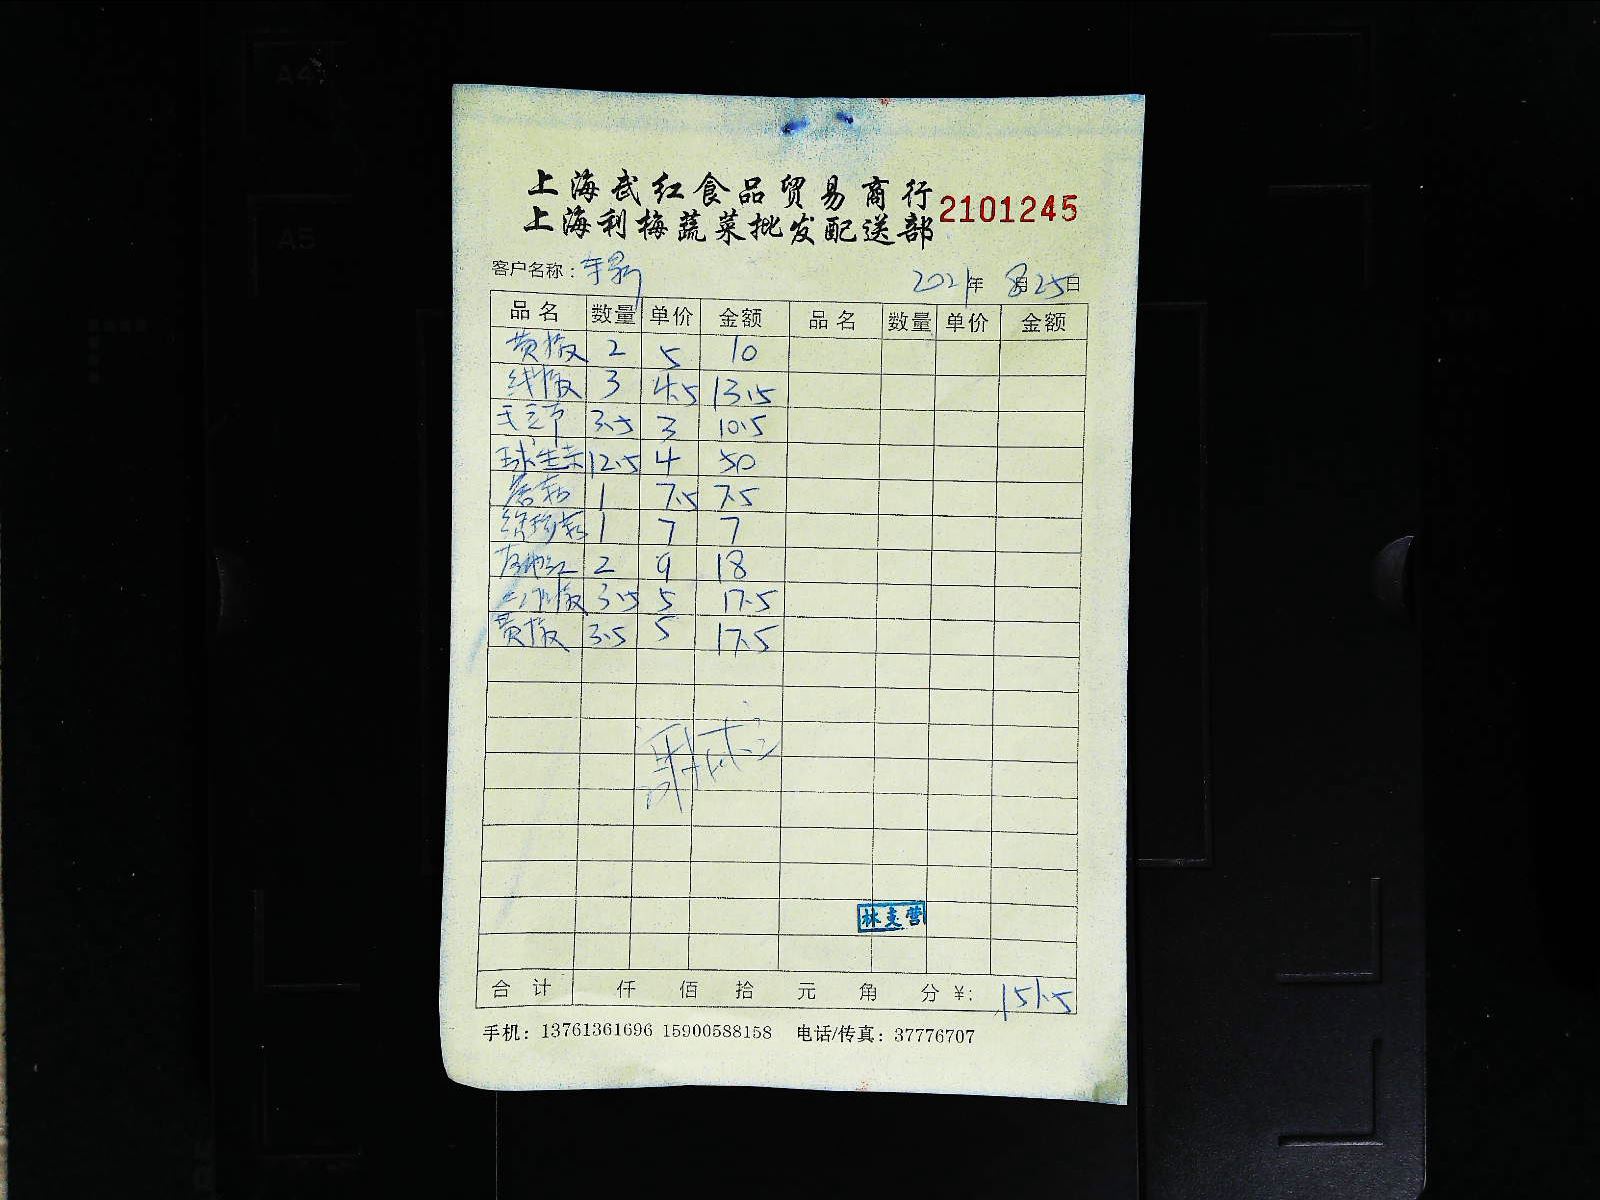 A4
A5
上海武红食品贸易商行
上海利梅蔬菜批发配送部
2101245
客户名称：
2021年 8月25日
品名 数量 单价 金额 品名 数量 单价 金额
黄椒 2 5 10
线椒 3 4.5 13.5
3.5 3 10.5
球生菜 12.5 4 50
1 7.5 7.5
1 7 7
2 9 18
3.5 5 17.5
黄椒 3.5 5 17.5
林支营
合计 仟 佰 拾 元 角 分 ¥: 151.5
手机：13761361696 15900588158 电话/传真：37776707